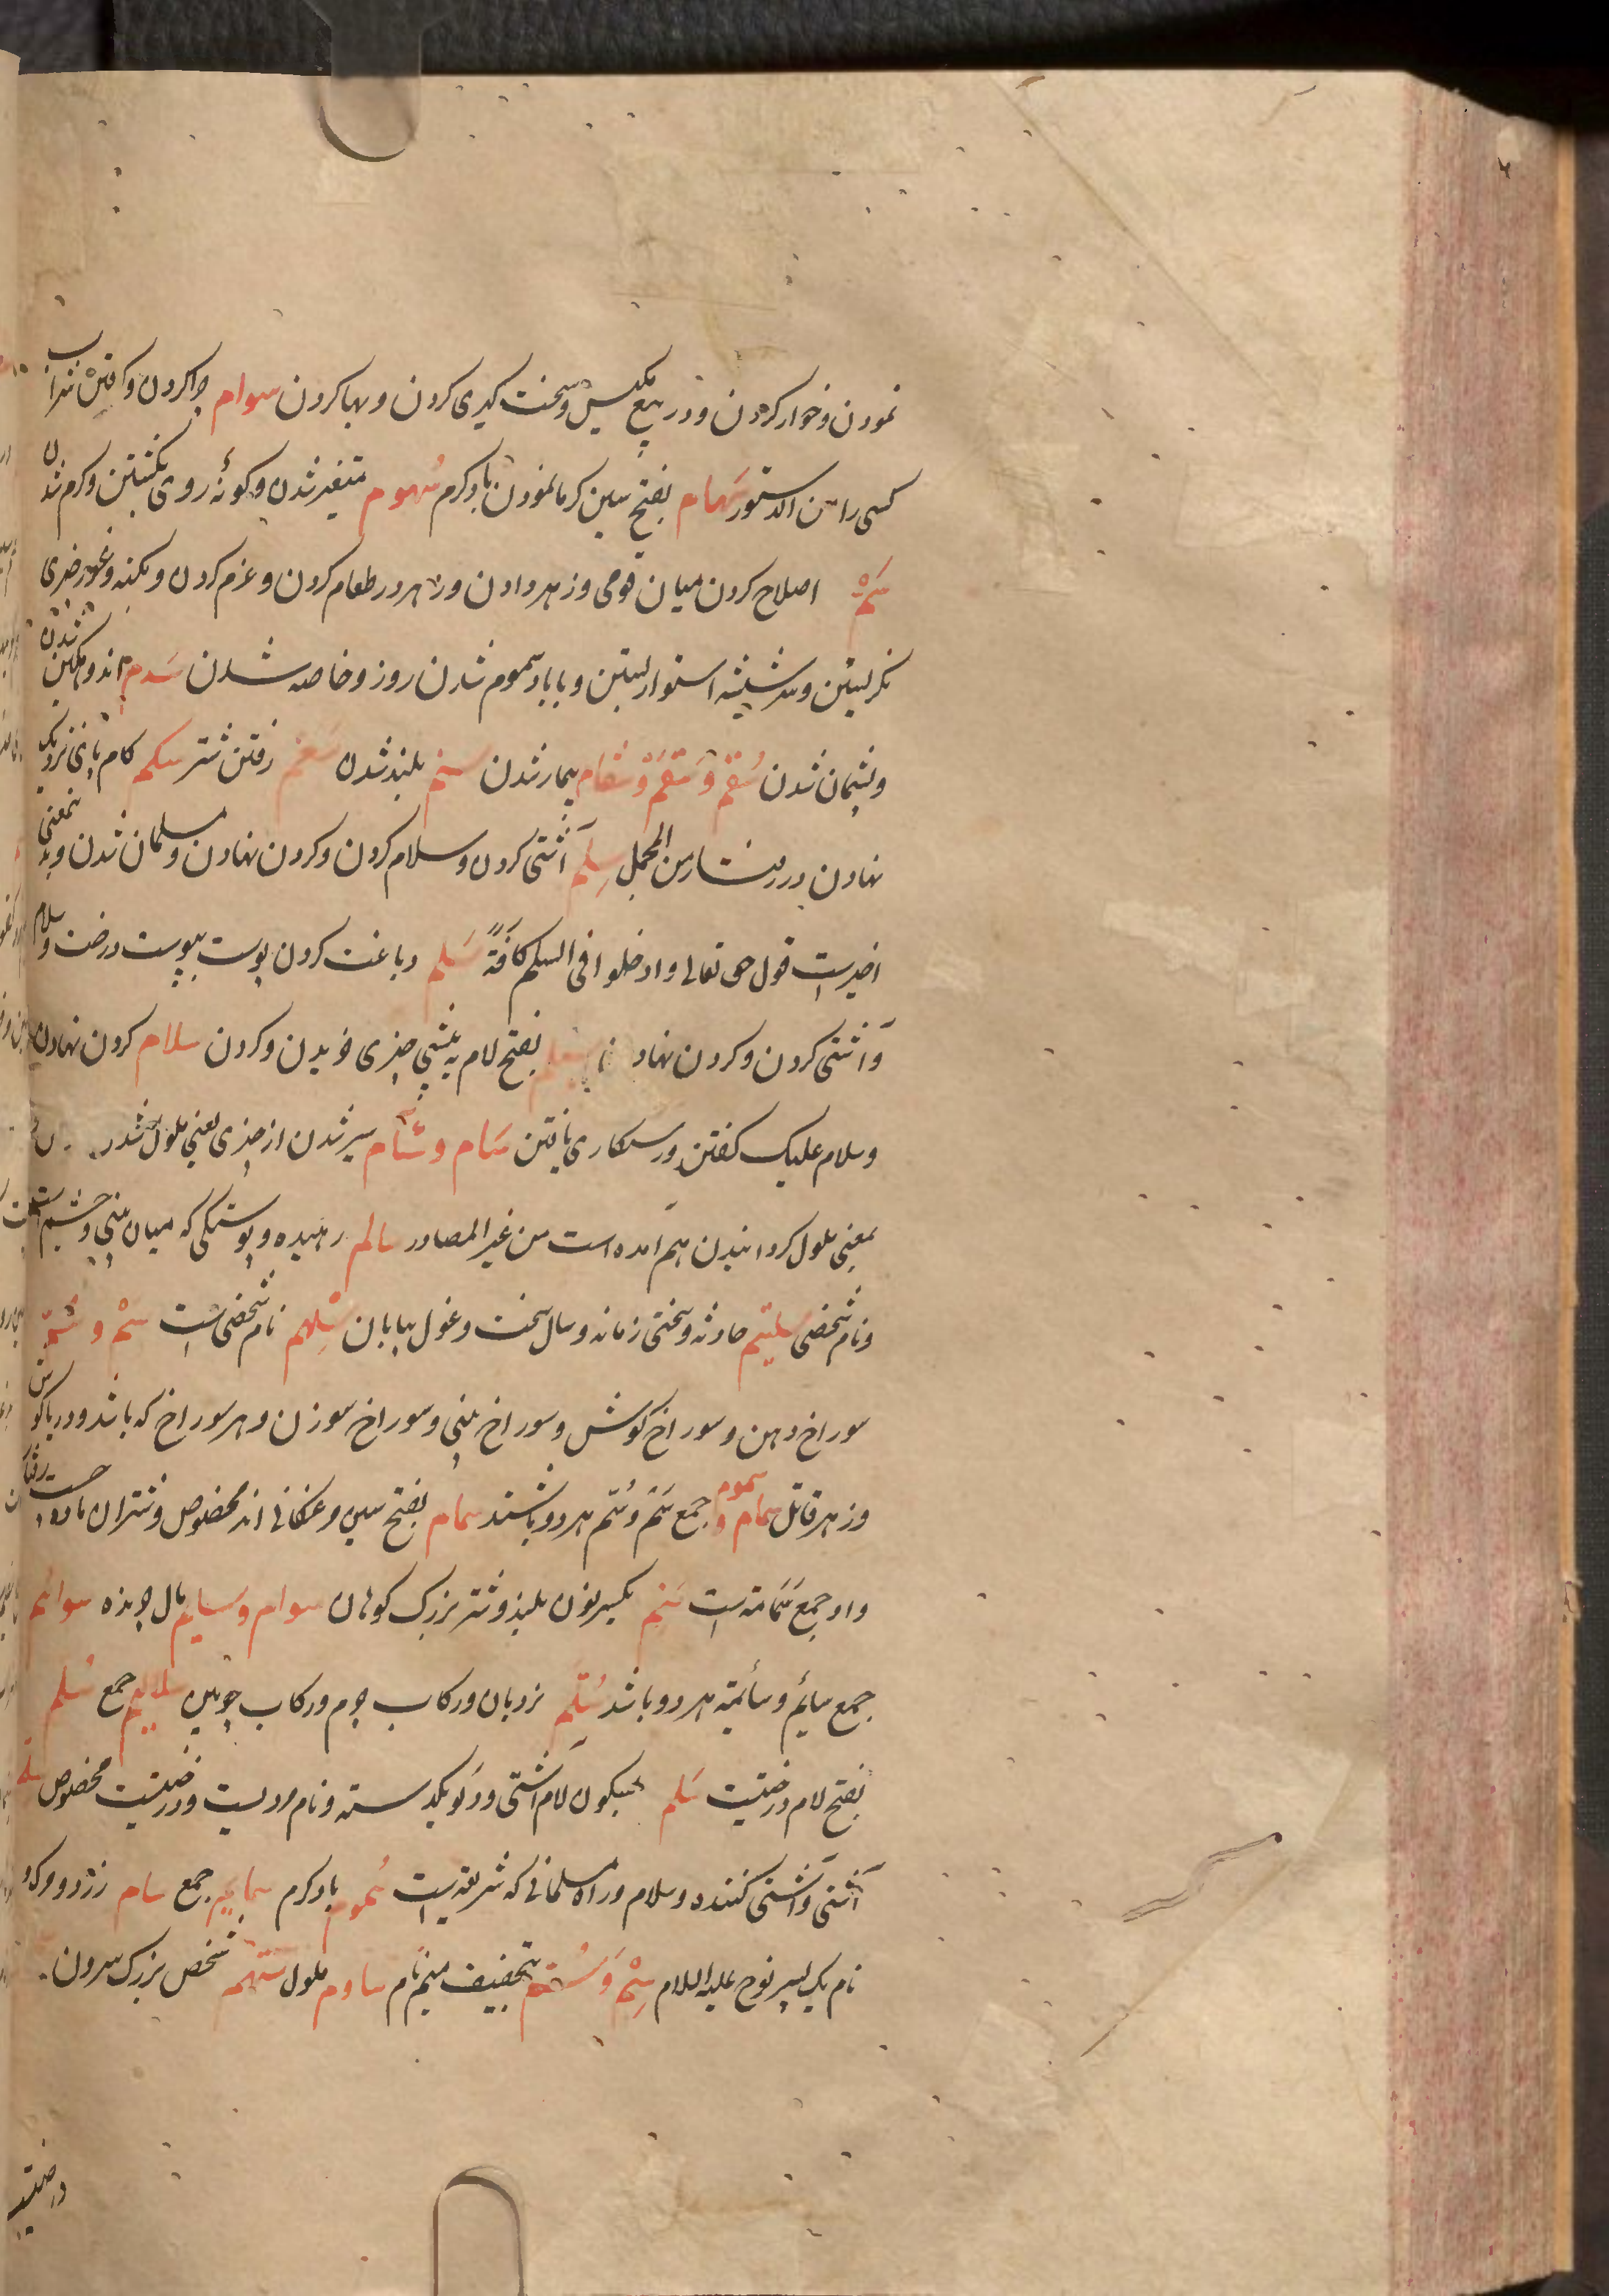 نمودن و خوار کردن و در بیع مکیس و سخت کیری کردن و بها کردن سوام چرا کردن و رفتن شراب
کسی را من الدستور سَهام بفتح سین کرما نمودن باد کرم سُهوم متغیر شدن و کونهٔ روی بکشتن و کرم شدن
سَمّ اصلاح کردن میان قومی و زهر دادن و زهر در طعام کردن و عزم کردن و بکنه و غور چیزی
نکریستن و سر شیشه استوار بستن و با باد سموم شدن روز و خاصه شدن سَدم اندوهکین شدن
و پشیمان شدن سُقْم و سَقَم و سَقام بیمار شدن سنم بلند شدن سعم رفتن شتر سکم کام پای نزدیک
نهادن در رفتار من المجمل سِلم آشتی کردن و سلام کردن و کردن نهادن و مسلمان شدن و بدین معنی
اخیرست قول حق تعالی وادخلوا فی السلم کافة سَلم دباغت کردن پوست بپوست درخت و سلام
و آشتی کردن و کردن نهادن بفتح لام به پیشی چیزی خریدن و کردن سلام کردن نهادن
و سلام علیک کفتن و رستکاری یافتن سَام و سَآم سیر شدن از چیزی یعنی ملول شدن
بمعنی ملول کردانیدن هم آمده است من غیر المصادر سالم رهیده و پوستکی که میان بینی و چشم است
و نام شخصی سلتم حادثه و سختی زمانه و سال سخت و غول بیابان سِلهم نام شخصی است سَم و سُمّ
سوراخ دهن و سوراخ کوش و سوراخ بینی و سوراخ سوزن و هر سوراخ که باشد و دریا کوش
و زهر قاتل سمام و سموم جمع سَم و سُم هر دو باشند سمام بفتح سین مرغکانی اند مخصوص و شتران ماده
واو جمع سَمامة است سَنم بکسر نون بلند و شتر بزرک کوهان سوام و سایم مال چرنده سوائم
جمع سائم و سائمة هر دو باشد سُلّم نردبان و رکاب چرم و رکاب چوبین سلالیم جمع سَلم
بفتح لام درختیست سَلم بسکون لام آشتی و دلو یکدسته و نام مردیست و درختیست مخصوص
آشتی و آشتی کننده و سلام و راه مسلمانی که شریعتست سَموم باد کرم سمایم جمع سام زر و
نام یک پسر نوح علیه السلام سِمْ وَ سُم بتخفیف میم نام ساوم ملول سهم شخص بزرک سرون
درختیست